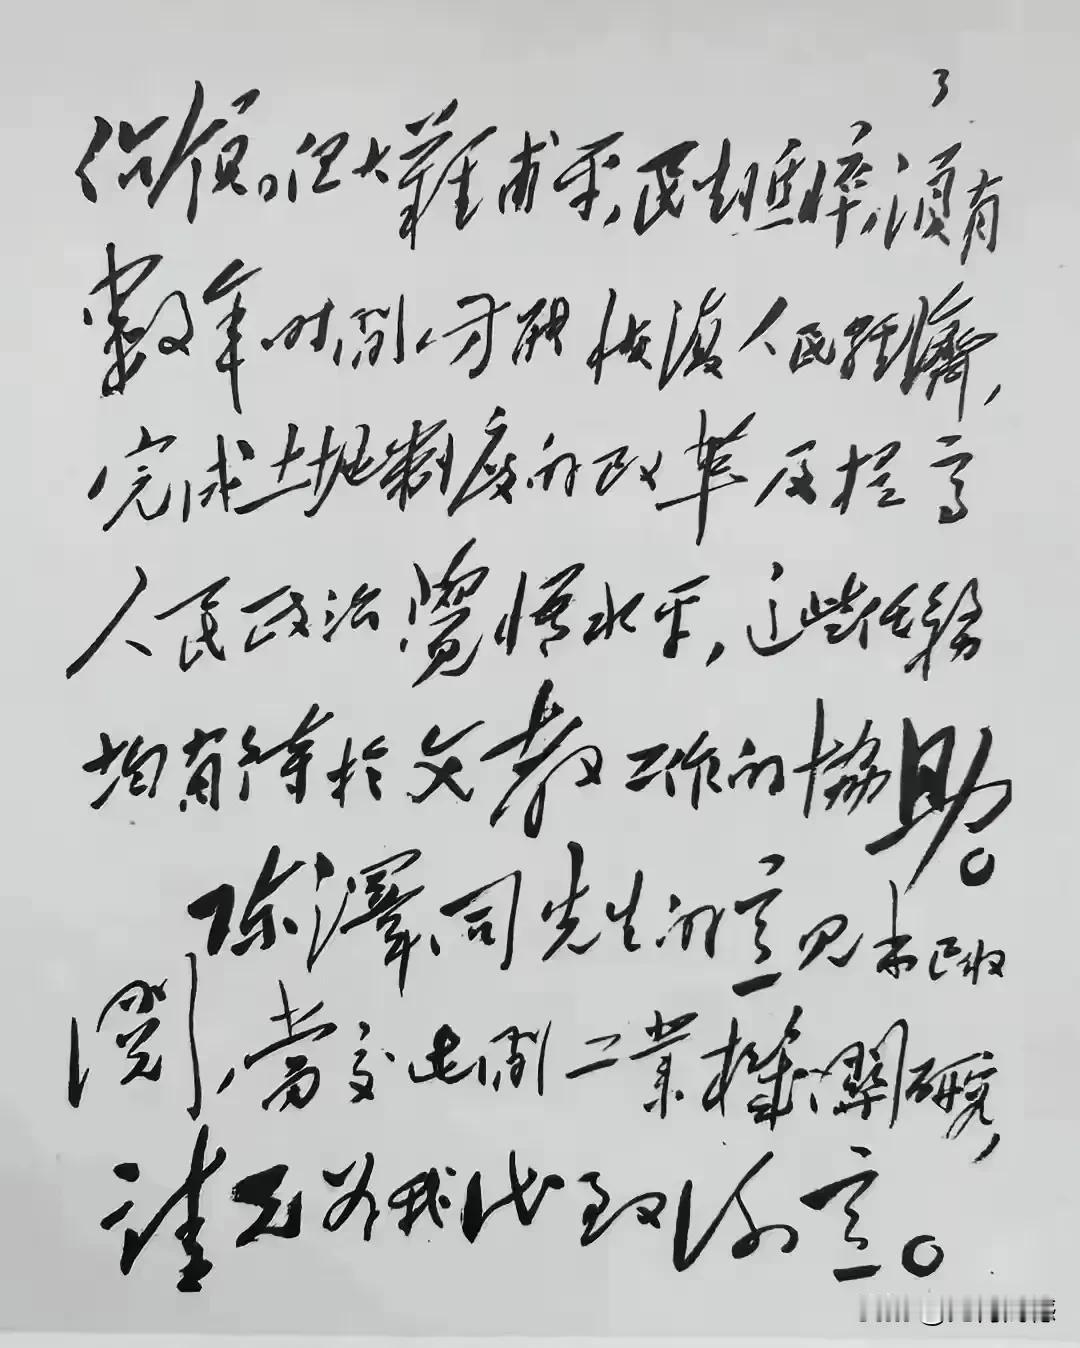 3
但大難甫平，民生憔悴，須有
數年时間，方能恢復人民經濟，
完成土地制度的改革及提高
人民政治覺悟水平，这些任務
均有待於文教工作的協助。
陈澤同先生的意见书已收
閱，當交此間工業機關研究，
請兄为我代致谢意。